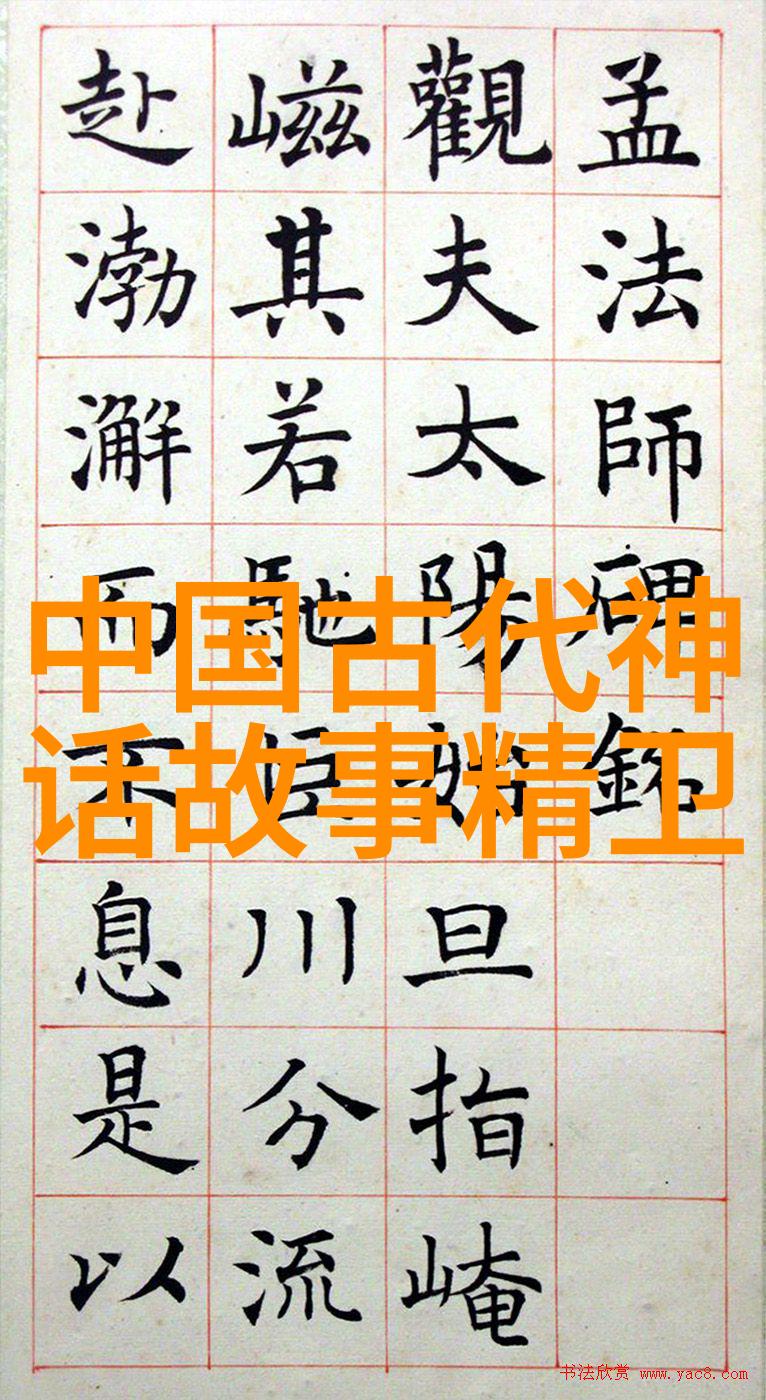 孟法師碑銘
觀夫太陽始旦指崦
嵫其若馳巨川分流
赴渤澥而不息是以
中国古代神
话故事精卫
书法欣赏 www.yac8.com